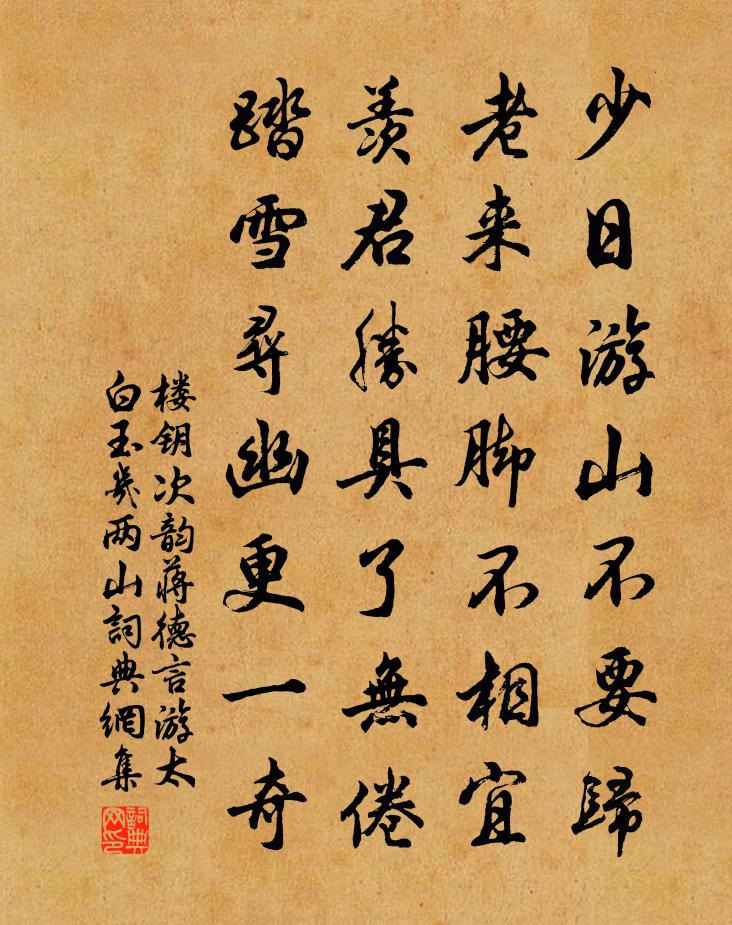 少日游山不要歸
老来腰脚不相宜
羨君勝具了無倦
踏雪尋幽更一奇
楼钥次韵蒋德言游太
白玉几两山詞典網集
詞典
网印